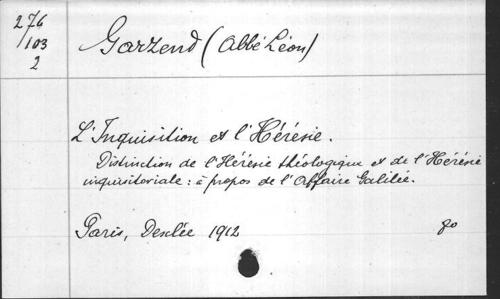 276
/103
2
Garzend (Abbé Léon)
L'Inquisition et l'Hérésie.
Distinction de l'Hérésie théologique et de l'Hérésie
inquisitoriale : à propos de l'Affaire Galilée.
Paris, Desclée 1912 8o